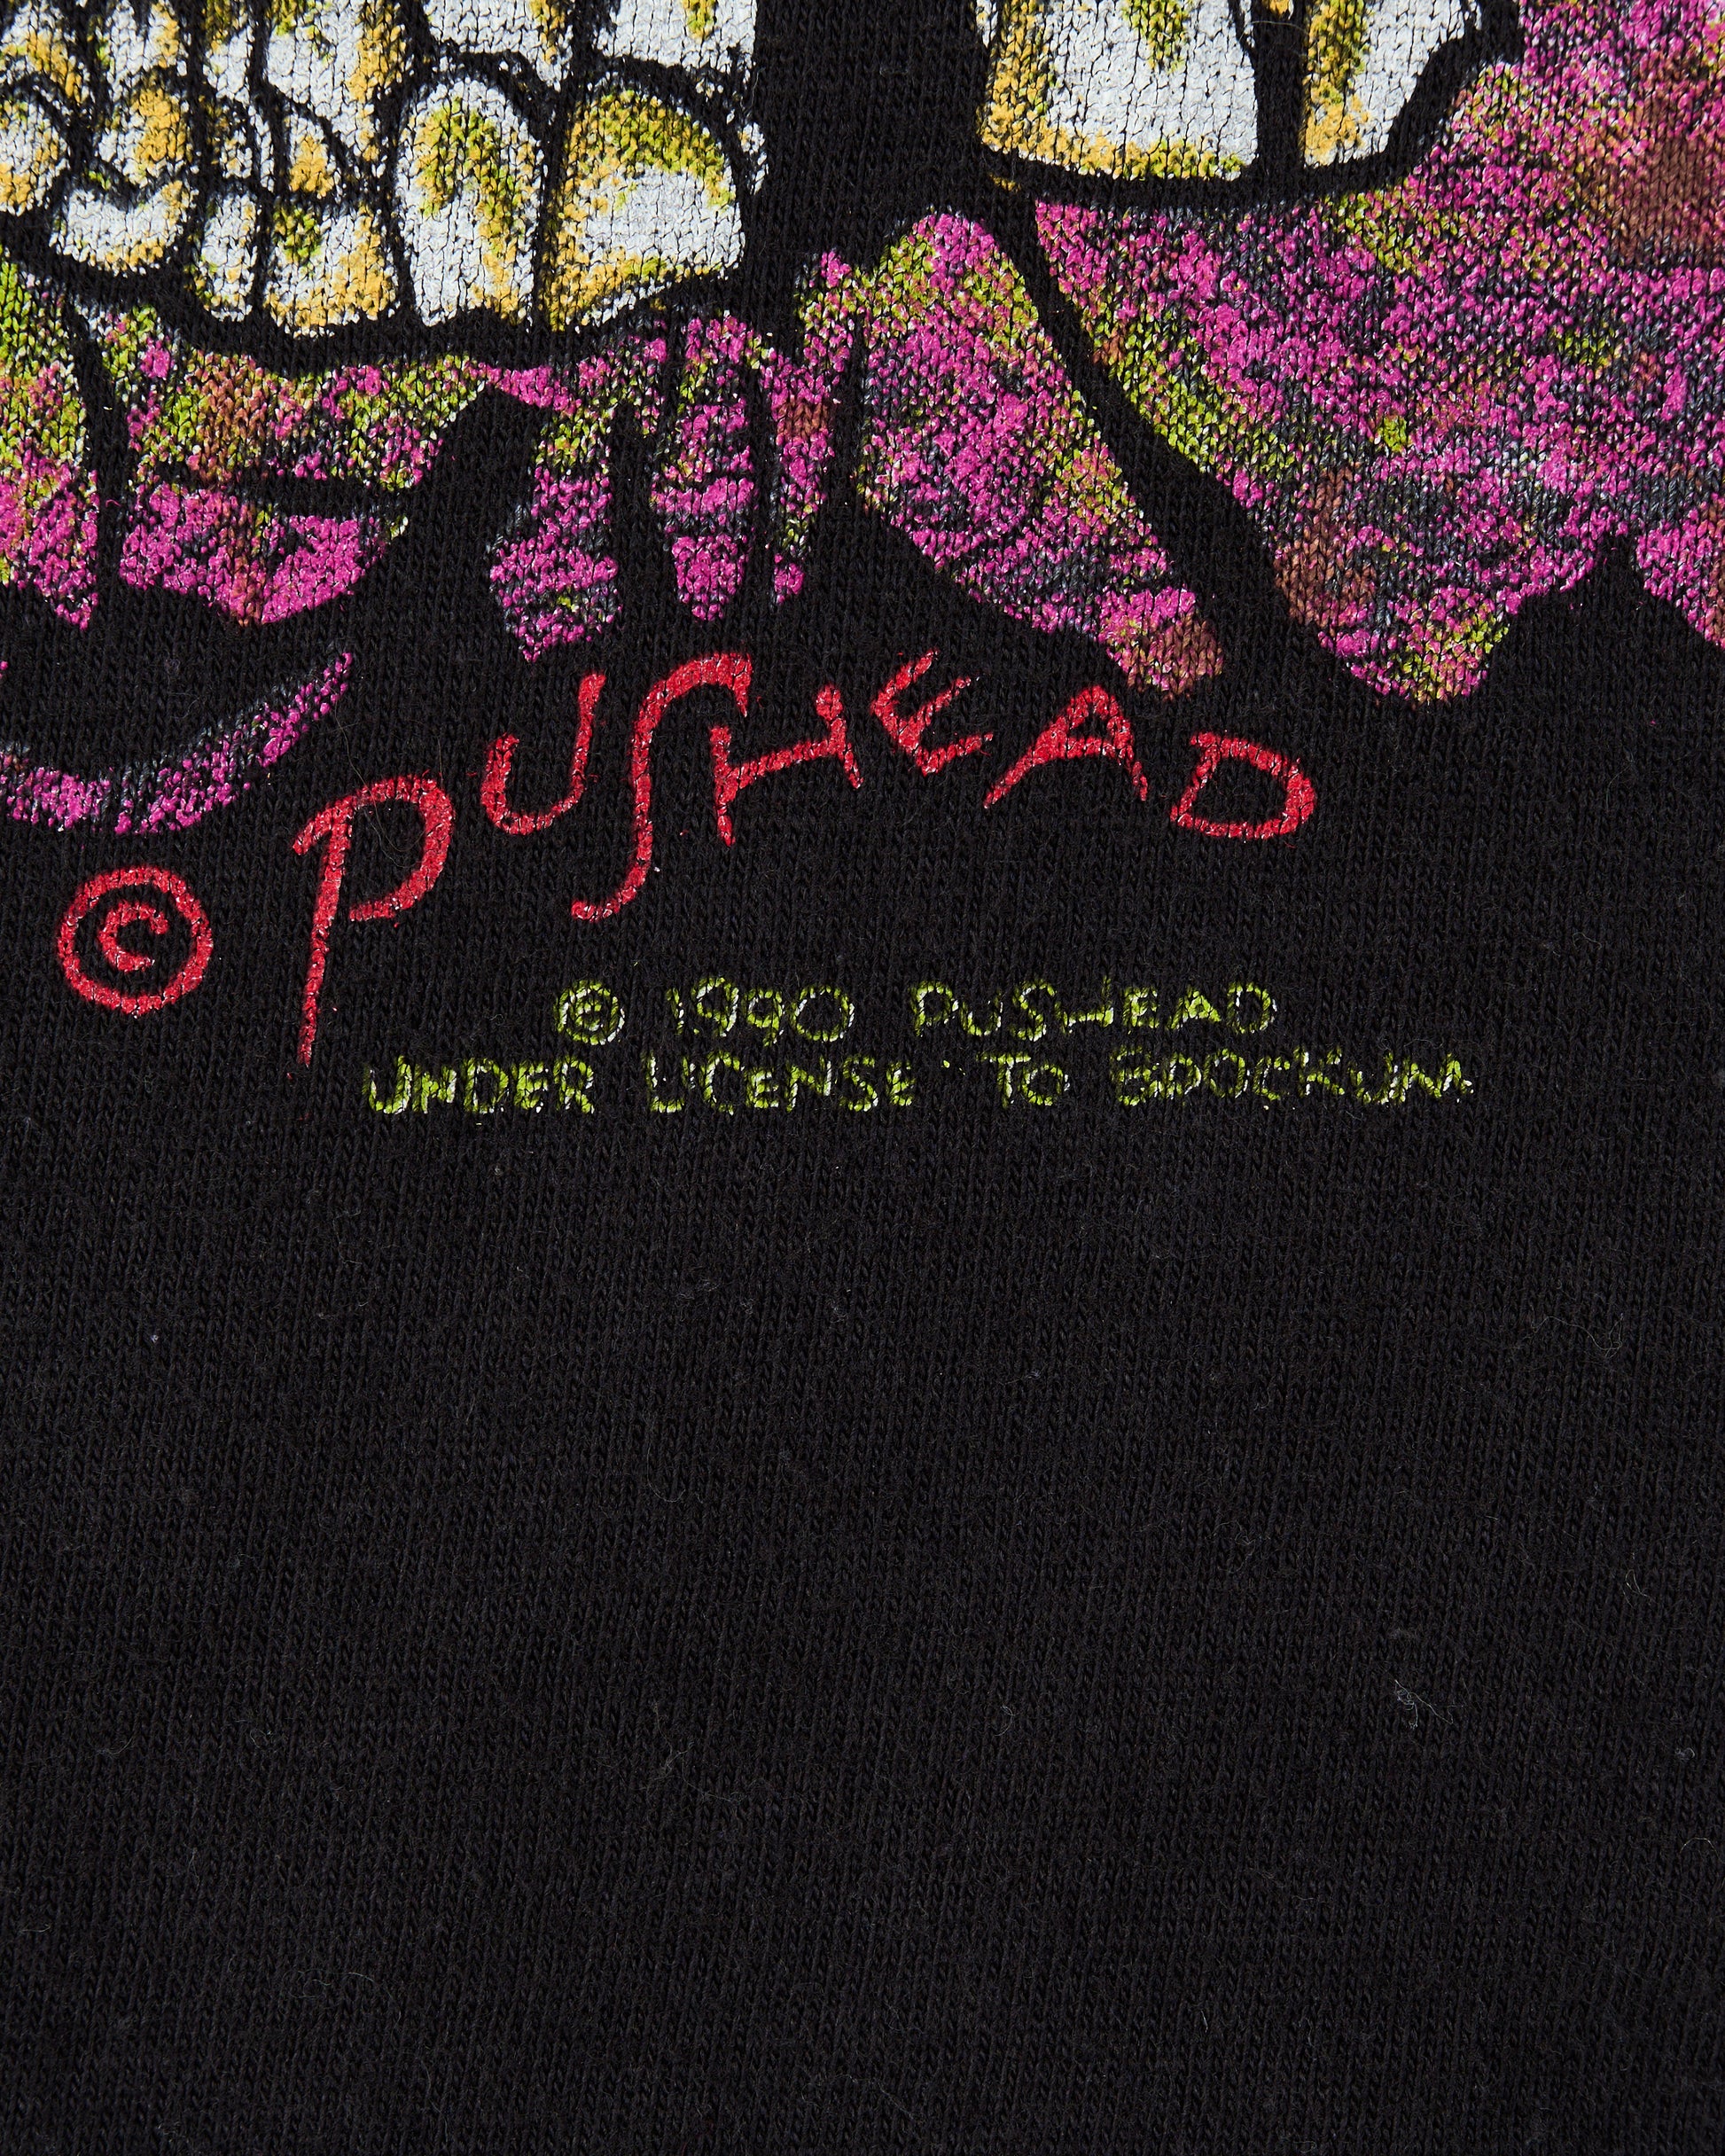 © PUSHEAD
© 1990 PUSHEAD
UNDER LICENSE TO BROCKUM